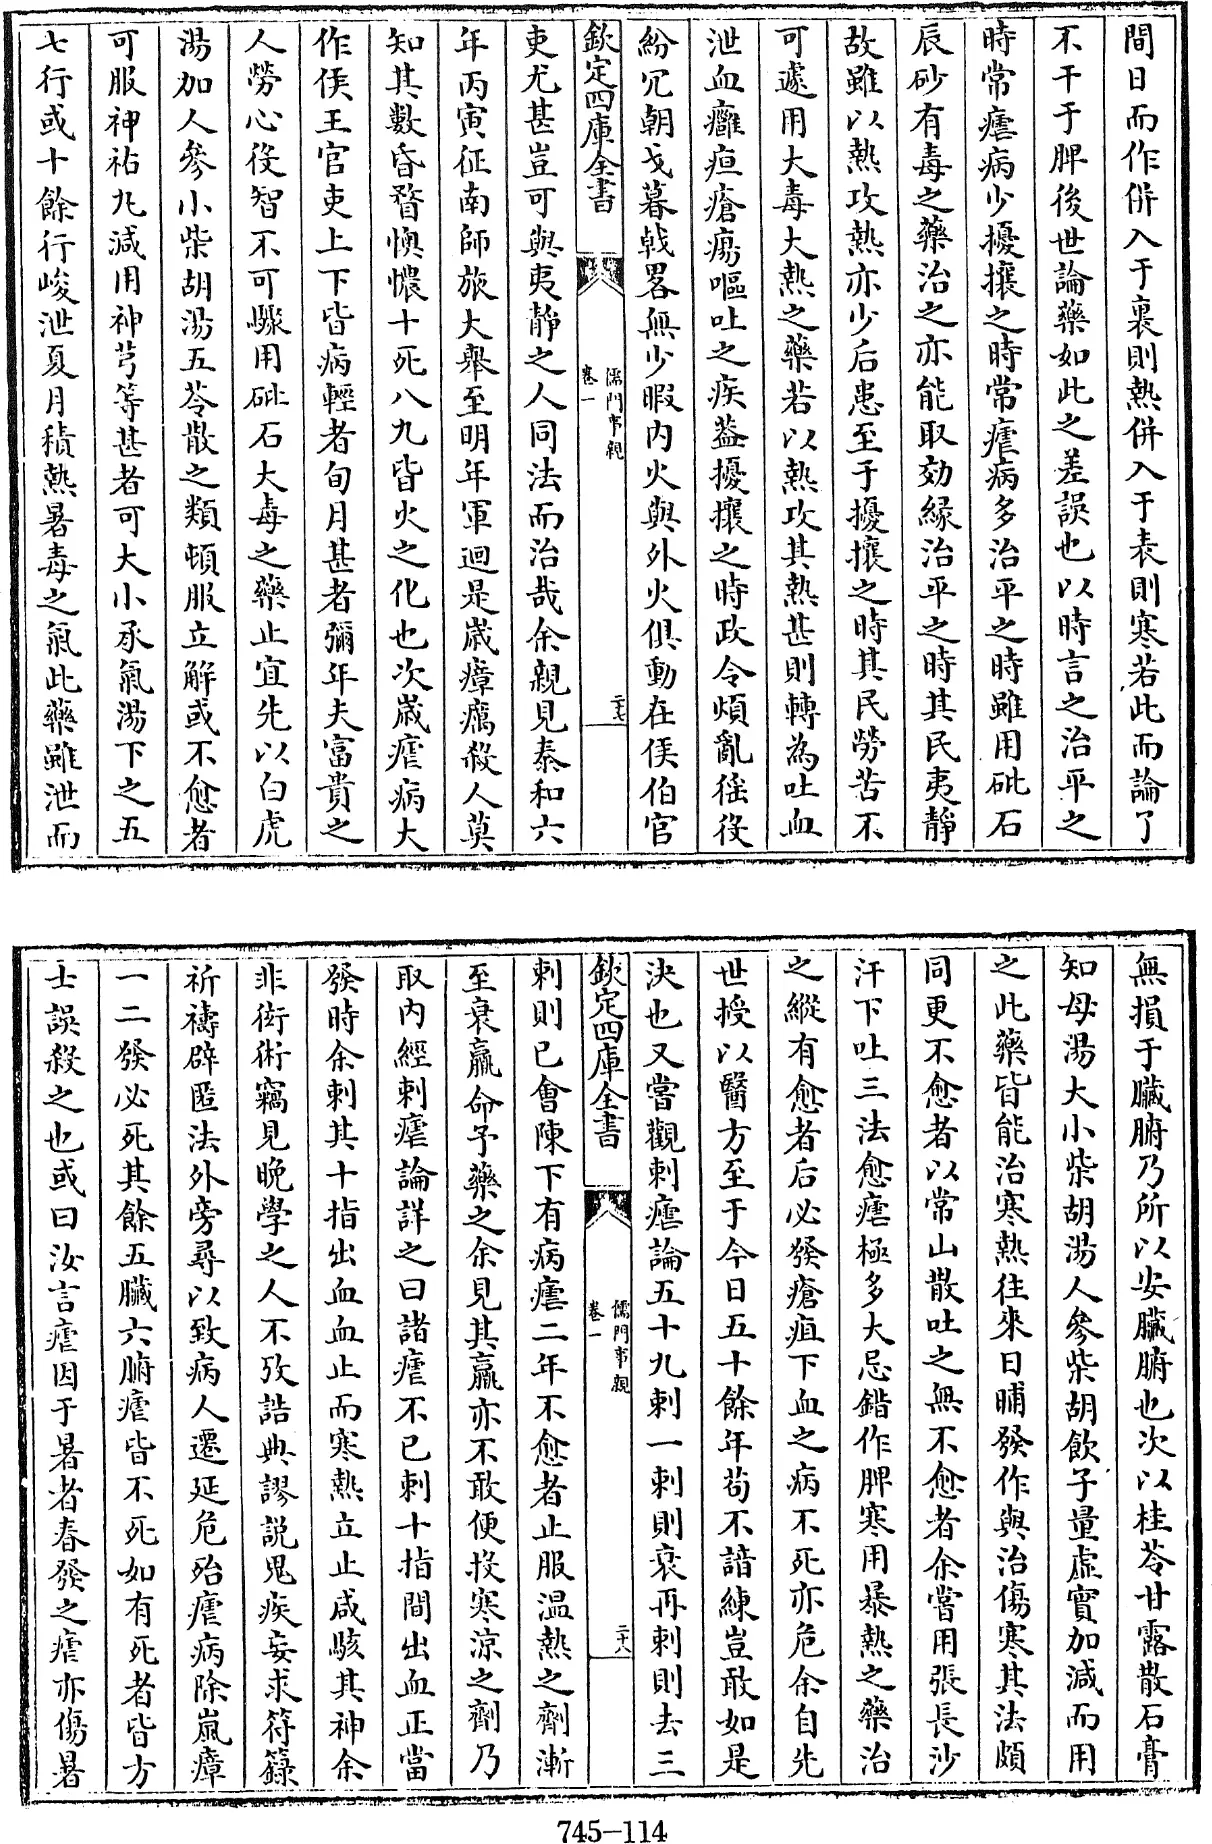 間日而作併入于裏則熱併入于表則寒若此而論了
不干于脾後世論藥如此之差誤也以時言之治平之
時常瘧病少擾攘之時常瘧病多治平之時雖用砒石
辰砂有毒之藥治之亦能取効緣治平之時其民夷靜
故雖以熱攻熱亦少后患至于擾攘之時其民勞苦不
可遽用大毒大熱之藥若以熱攻其熱甚則轉為吐血
泄血癰疽瘡瘍嘔吐之疾葢擾攘之時政令煩亂徭役
紛冗朝戈暮戟畧無少暇内火與外火俱動在侯伯官
欽定四庫全書
儒門事親
卷一
二十七
吏尤甚豈可與夷靜之人同法而治哉余親見泰和六
年丙寅征南師旅大舉至明年軍迴是嵗瘴癘殺人莫
知其數昏瞀懊憹十死八九皆火之化也次嵗瘧病大
作侯王官吏上下皆病輕者旬月甚者彌年夫富貴之
人勞心役智不可驟用砒石大毒之藥止宜先以白虎
湯加人參小柴胡湯五苓散之類頓服立解或不愈者
可服神祐丸減用神芎等甚者可大小承氣湯下之五
七行或十餘行峻泄夏月積熱暑毒之氣此藥雖泄而
無損于臟腑乃所以安臟腑也次以桂苓甘露散石膏
知母湯大小柴胡湯人參柴胡飲子量虛實加減而用
之此藥皆能治寒熱往來日晡發作與治傷寒其法頗
同更不愈者以常山散吐之無不愈者余嘗用張長沙
汗下吐三法愈瘧極多大忌錯作脾寒用暴熱之藥治
之縱有愈者后必發瘡疽下血之病不死亦危余自先
世授以醫方至于今日五十餘年苟不諳練豈敢如是
決也又嘗觀刺瘧論五十九刺一刺則衰再刺則去三
欽定四庫全書
儒門事親
卷一
二十八
刺則已會陳下有病瘧二年不愈者止服温熱之劑漸
至衰羸命予藥之余見其羸亦不敢便投寒涼之劑乃
取内經刺瘧論詳之曰諸瘧不已刺十指間出血正當
發時余刺其十指出血血止而寒熱立止咸駭其神余
非衒術竊見晩學之人不攷誥典謬説鬼疾妄求符籙
祈禱辟匿法外旁尋以致病人遷延危殆瘧病除嵐瘴
一二發必死其餘五臟六腑瘧皆不死如有死者皆方
士誤殺之也或曰汝言瘧因于暑者春發之瘧亦傷暑
745-114